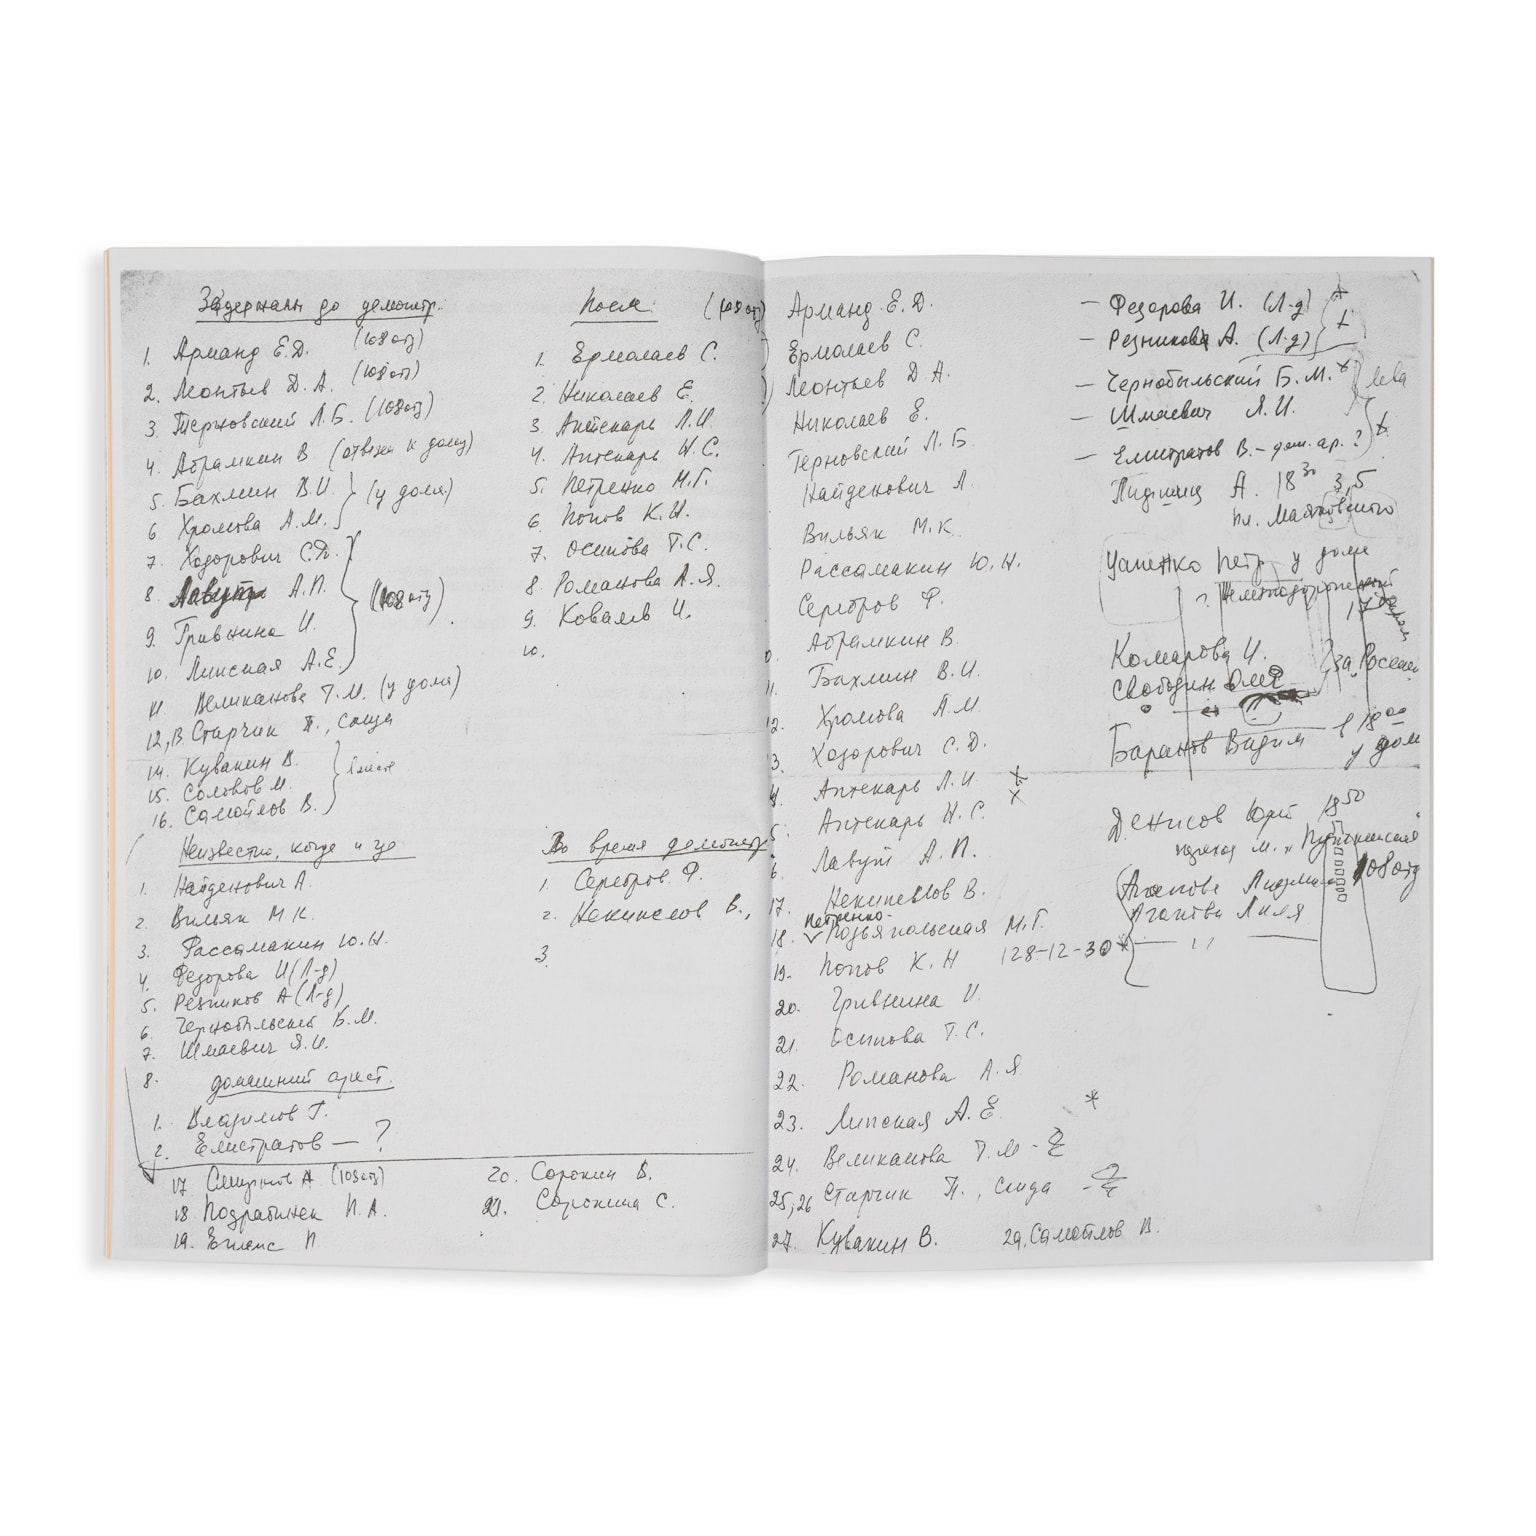 Задержаны до демонстр.
1. Арманд Е.Д. (108 отд)
2. Леонтьев Д.А. (108 отд)
3 Терновский Л.Б. (108 отд)
4. Абрамкин В (отвезен к дому)
5. Бахмин В.И. } (у дома)
6 Хромова А.М.
7. Ходорович С.Д.
8. Лавут А.П. (108 отд)
9. Гривнина И.
10. Липская А.Е.
11. Великанова Т.М. (у дома)
12, 13. Старчик П.,
14. Кувакин В. } вместе
15. Соловов М.
16. Самойлов В.
Неизвестно, когда и где
1. Найденович А.
2. Вильяк М.К.
3. Рассамакин Ю.Н.
4. Федорова И (Л-д)
5. Резников А (Л-д)
6 Чернобыльский Б.М.
7. Шмаевич Я.И.
8.
домашний арест.
1. Владимов Г.
2. Елистратов — ?
17 Смирнов А (108 отд)
18 Подрабинек П.А.
19. П
После (108 отд)
1. Ермолаев С.
2. Николаев Е.
3. Аптекарь Л.И.
4. Аптекарь Н.С.
5. Петренко М.Г.
6. Попов К.Н.
7. Осипова Т.С.
8 Романова А.Я.
9. Ковалев И.
10.
Во время демонстр
1. Серебров Ф.
2. Некипелов В.,
3.
20. Сорокин В.
21. Сорокина С.
Арманд Е.Д.
Ермолаев С.
Леонтьев Д.А.
Николаев Е.
Терновский Л.Б
Найденович А.
Вильяк М.К
Рассамакин Ю.Н.
Серебров Ф.
Абрамкин В.
Бахмин В.И.
2. Хромова А.М
3. Ходорович С.Д.
4. Аптекарь Л.И. x
5. Аптекарь Н.С. x
6. Лавут А.П.
17. Некипелов В.
Петренко-
18. Подъяпольская М.Г.
19. Попов К.Н 128-12-30 *
20. Гривнина И.
21. Осипова Т.С.
22. Романова А.Я
23. Липская А.Е *
24. Великанова Т.М -
25, 26 Старчик П.,
27. Кувакин В. 29. Самойлов В.
— Федорова И. (Л-д)
— Резникова А. (Л-д)
— Чернобыльский Б.М. Лева
— Шмаевич Я.И.
— Елистратов В. – дом. ар.?
А. 18 30 3,5
пл. Маяковского
Петр у дома
Комарова И.
Свободин
Баранов Вадим в 18 00
у дом
Денисов Юрий 18 50
переход м. "Пушкинская"
Агапова 108 отд
Агапова Лиля
— " —